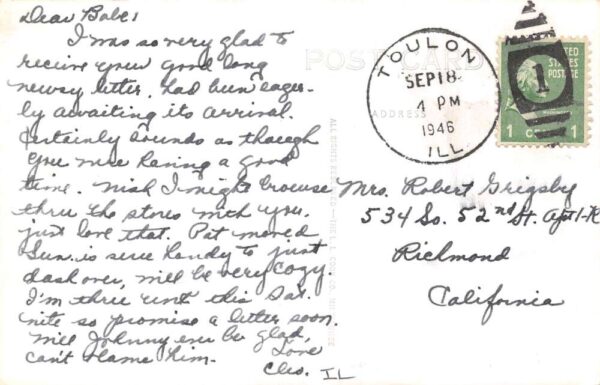 Dear Babe:
I was so very glad to
receive your good long
newsy letter. Had been eager-
ly awaiting its arrival.
Certainly sounds as though
you were having a good
time. Wish I might browse
thru the stores with you.
just love that. Pat moved
Sun. is sure handy to just
dash over, will be very cozy.
I'm thru with this Sat.
nite so promise a letter soon.
Will Johnny ever be glad,
can't blame him.
Love
Cleo.
IL
POST CARD
ADDRESS
TOULON
SEP 18
4 PM
1946
ILL.
UNITED
STATES
POSTAGE
1
1 CENT 1
Mrs. Robert Grigsby
534 So. 52nd St. Apt 1-K
Richmond
California